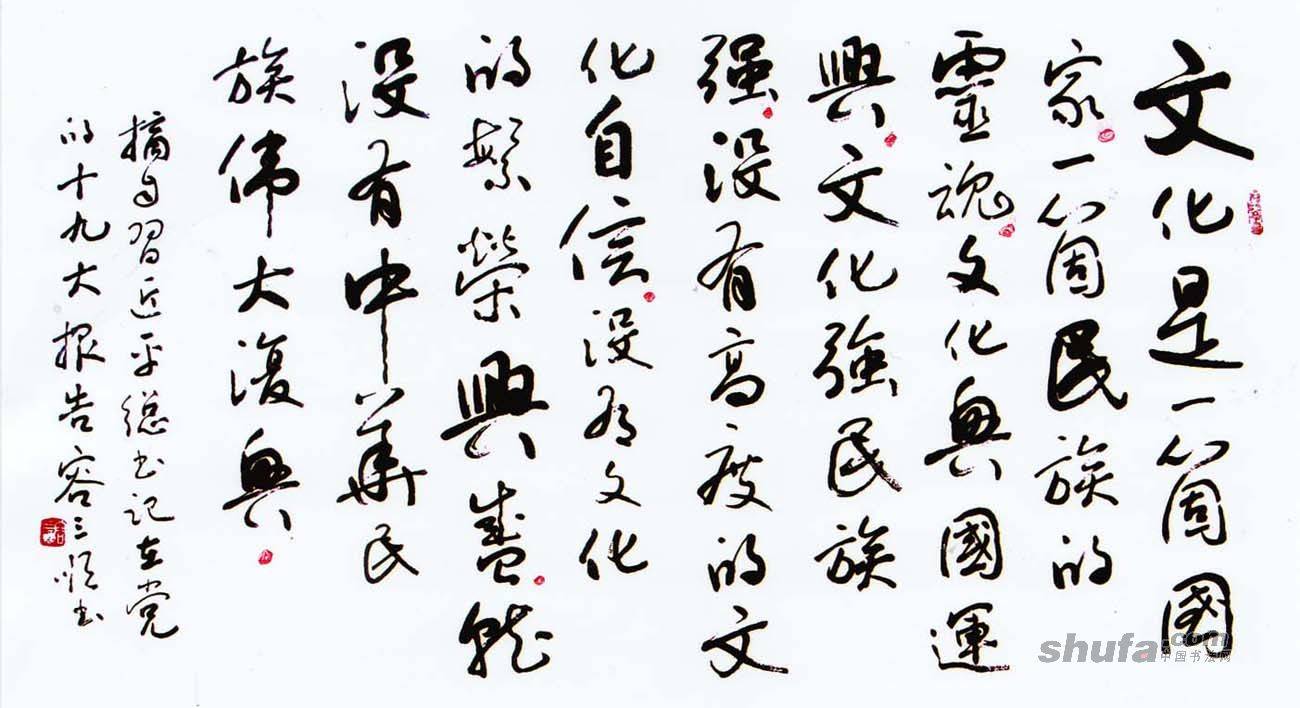 文化是一箇國
家一箇民族的
靈魂文化興國運
興文化強民族
强没有高度的文
化自信没有文化
的繁榮興盛就
没有中華民
族偉大復興
摘自習近平總书记在党
的十九大报告容三順书
shufa.com
中国书法网